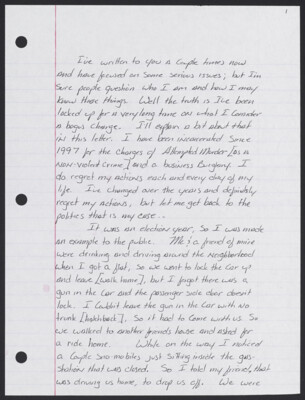 1
I've written to you a couple times now
and have focused on some serious issues; but I'm
sure people question who I am and how I may
know these things. Well the truth is I've been
locked up for a very long time on what I consider
a bogus charge. I'll explain a bit about that
in this letter. I have been incarcerated since
1997 for the charges of Attempted Murder [as a
non-violent crime] and a business Burglary. I
do regret my actions each and every day of my
life. I've changed over the years and definitely
regret my actions, but let me get back to the
politics that is my case...
It was an election year, so I was made
an example to the public. Me & a friend of mine
were drinking and driving around the neighborhood
when I got a flat, so we went to lock the car up
and leave [walk home], but I forgot there was a
gun in the car and the passenger side door doesn't
lock. I couldn't leave the gun in the car with no
trunk [hatchback], so it had to come with us. So
we walked to another friends house and asked for
a ride home. While on the way I noticed
a couple snow mobiles just sitting inside the gas-
station that was closed. So I told my friend, that
was driving us home, to drop us off. We were